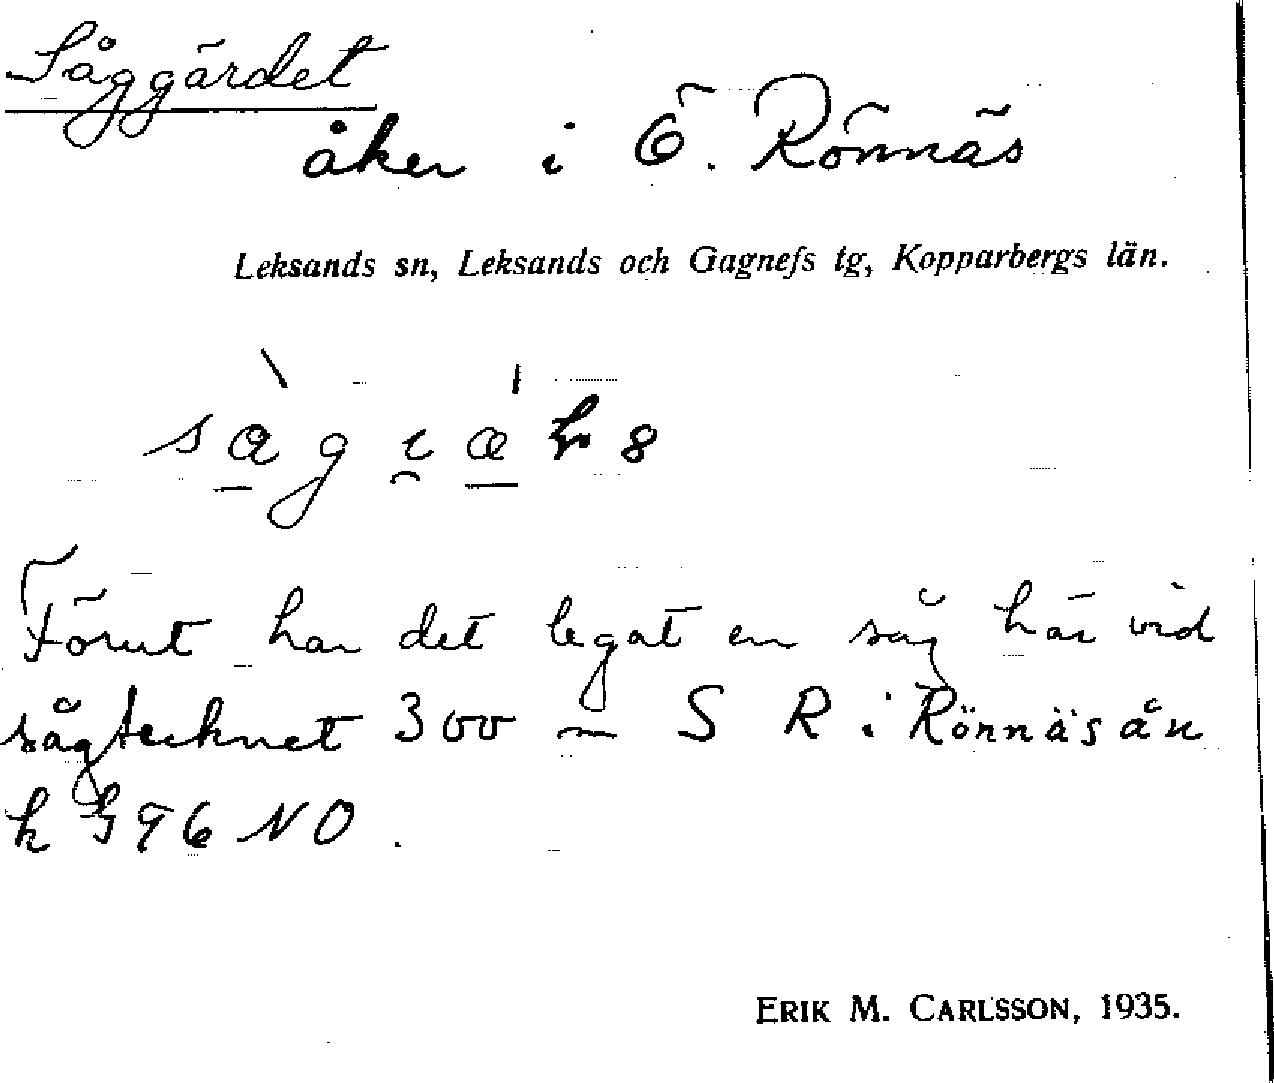 Såggärdet
åker i Ö. Rönnäs
Leksands sn, Leksands och Gagnefs tg, Kopparbergs län.
Förut har det legat en såg här vid
sågtecknet 300 m S R i Rönnäsån
k G96 NO.
ERIK M. CARLSSON, 1935.